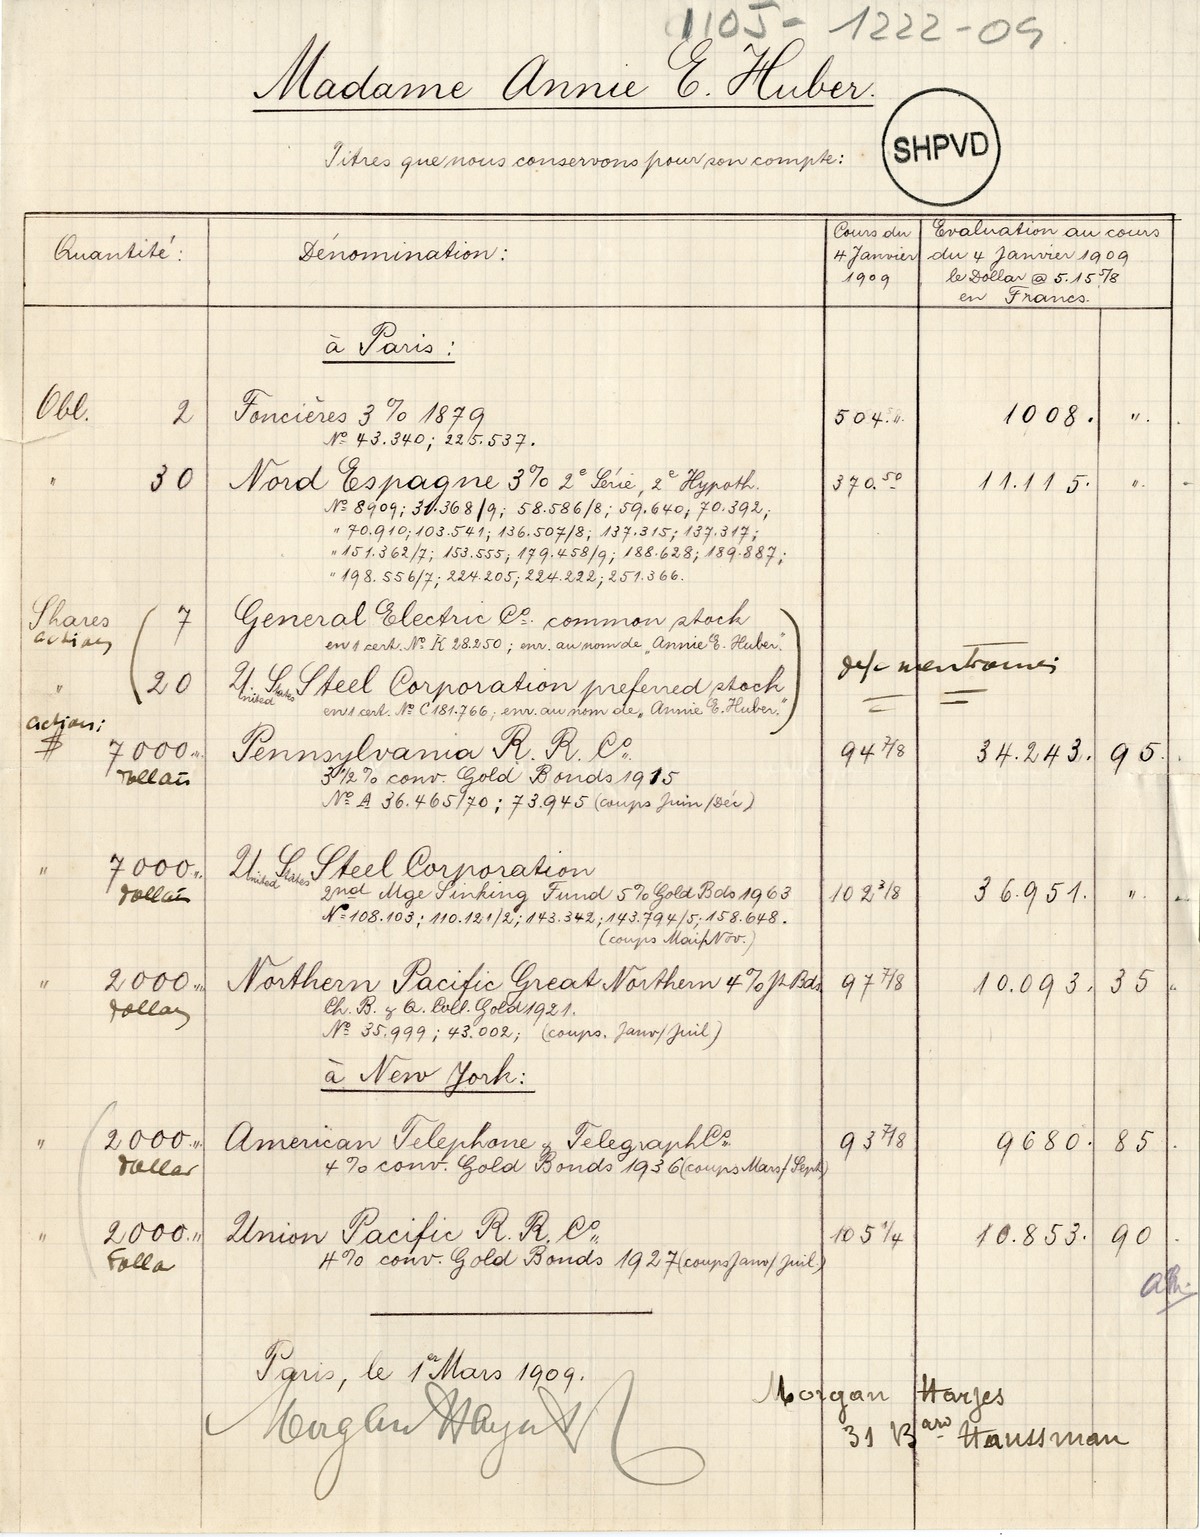 1105 - 1222-09
Madame Annie E. Huber.
SHPVD
Titres que nous conservons pour son compte:
Quantité: Dénomination: Cours du 4 Janvier 1909 Evaluation au cours du 4 Janvier 1909 le Dollar @ 5.15 5/8 en Francs.
à Paris:
Obl. 2 Foncières 3% 1879 504." 1008. ".
Nº 43.340; 225.537.
" 30 Nord Espagne 3% 2e Série, 2e Hypoth. 370.50 11.115. ".
Nº 8909; 31.368/9; 58.586/8; 59.640; 70.392;
" 70.910; 103.541; 136.507/8; 137.315; 137.317;
" 151.362/7; 153.555; 179.458/9; 188.628; 189.887;
" 198.556/7; 224.205; 224.222; 251.366.
Shares 7 General Electric Co. common stock
actions en 1 cert. Nº K 28.250; enr. au nom de "Annie E. Huber."
" 20 U. S. Steel Corporation preferred stock
United States
en 1 cert. Nº C 181.766; enr. au nom de "Annie E. Huber."
action:
$ 7000." Pennsylvania R. R. Co. 94 7/8 34.243. 95.
Dollars 3 1/2% conv. Gold Bonds 1915
Nº A 36.465/70; 73.945 (coups Juin/Déc)
" 7000." U. S. Steel Corporation
United States
Dollars 2nd Mge Sinking Fund 5% Gold Bds 1963 102 3/8 36.951. ".
Nº 108.103; 110.121/2; 143.342; 143.794/5; 158.648.
(coups Mai/Nov.)
" 2000." Northern Pacific Great Northern 4% Jt Bds 97 7/8 10.093. 35
Dollars Ch. B. & Q. Coll. Gold 1921.
Nº 35.999; 43.002; (coups. Janv/Juil)
à New York:
" 2000." American Telephone & Telegraph Co. 93 7/8 9680. 85
Dollar 4% conv. Gold Bonds 1936 (coups Mars/Sept)
" 2000." Union Pacific R. R. Co. 105 1/4 10.853. 90
Dolla 4% conv. Gold Bonds 1927 (coups Janv/Juil.)
Paris, le 1er Mars 1909.
Morgan Harjes
31 Bard Haussman